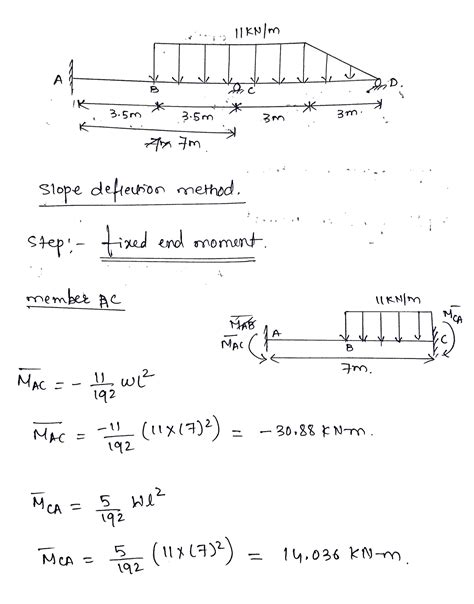 11KN/m
A
B
C
D.
3.5m 3.5m 3m 3m.
7m.
Slope deflection method.
Step:- fixed end moment.
member AC
11KN/m
M̅AB
M̅AC
M̅CA
A
B
C
7m.
M̅AC = - 11/192 Wl²
M̅AC = -11/192 (11×(7)²) = -30.88 KN-m.
M̅CA = 5/192 Wl²
M̅CA = 5/192 (11×(7)²) = 14.036 KN-m.